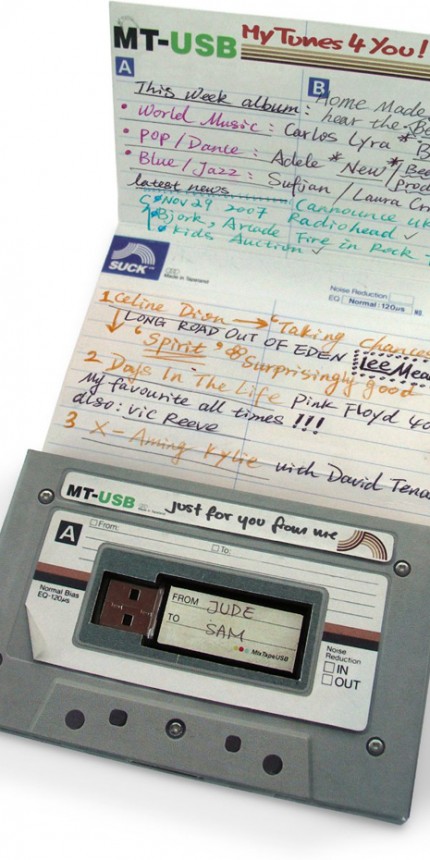 MT-USB My Tunes 4 You!
A B
This Week album: Home Made
hear the
• World Music: Carlos Lyra *
• POP/Dance: Adele * New
• Blue/Jazz: Sufjan / Laura
latest news
Nov 29 2007 (announce UK
Bjork, Arcade Fire in Rock
Kids Auction ✓ Radiohead ✓
SUCK
Noise Reduction
EQ Normal:120µs
1 Celine Dion → "Taking Chances
↓ LONG ROAD OUT OF EDEN Lee Mea
"Spirit" Surprisingly good
2 Days In The Life Pink Floyd 40
My favourite all times !!!
also: Vic Reeve
3 X-Aming Kylie with David Tena
MT-USB just for you from me
A From: To:
Normal Bias
EQ-120µs
FROM JUDE
TO SAM
MixTapeUSB
Noise
Reduction
IN
OUT